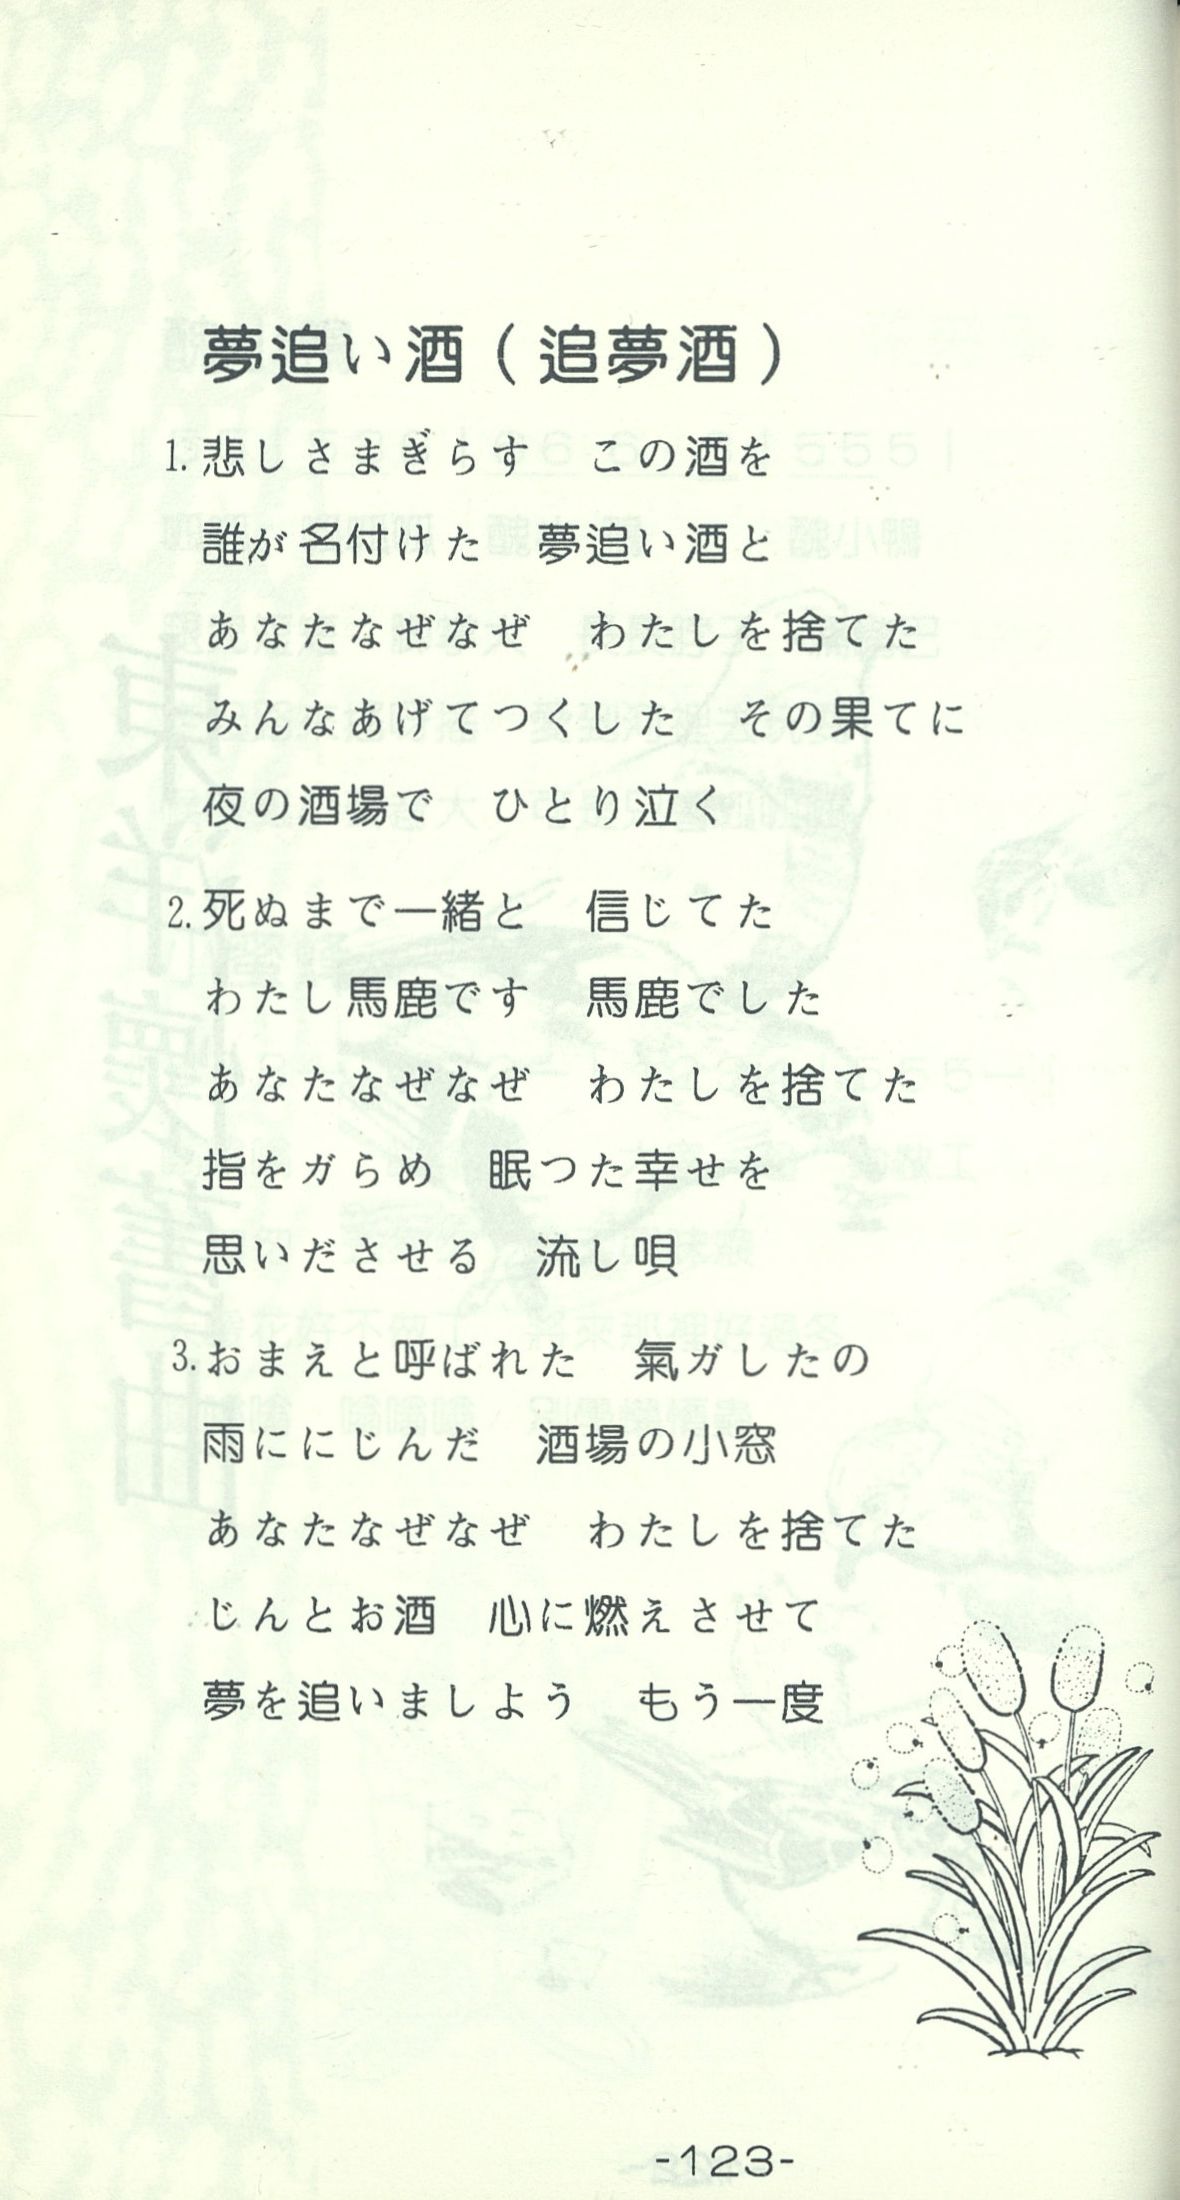 夢追い酒（追夢酒）
1.悲しさまぎらす　この酒を
誰が名付けた　夢追い酒と
あなたなぜなぜ　わたしを捨てた
みんなあげてつくした　その果てに
夜の酒場で　ひとり泣く
2.死ぬまで一緒と　信じてた
わたし馬鹿です　馬鹿でした
あなたなぜなぜ　わたしを捨てた
指をガらめ　眠つた幸せを
思いださせる　流し唄
3.おまえと呼ばれた　氣ガしたの
雨ににじんだ　酒場の小窓
あなたなぜなぜ　わたしを捨てた
じんとお酒　心に燃えさせて
夢を追いましよう　もう一度
-123-